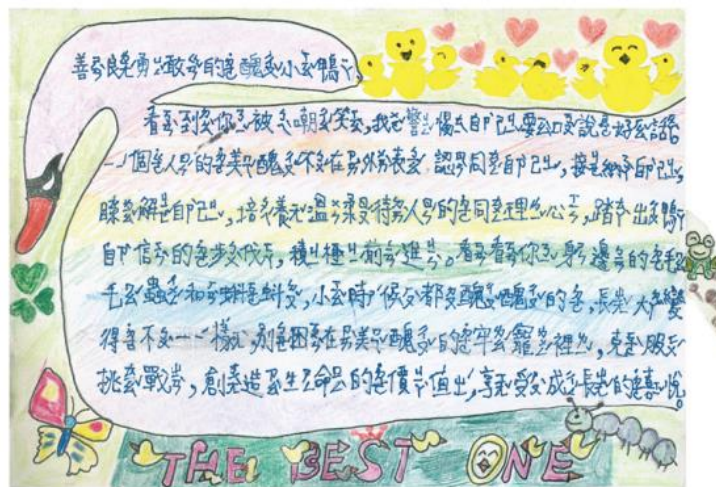 善良勇敢的醜小鴨
看到你被嘲笑，我警惕自己要口說好話
一個人的美醜不在外表，認同自己，接納自己，
瞭解自己，培養溫柔待人的同理心，踏出
自信的步伐，積極前進。看看你身邊的毛
毛蟲和蝌蚪，小時候都醜醜的，長大變
得不一樣，別困在美醜的牢籠裡，克服
挑戰，創造生命的價值，享受成長的喜悅。
THE BEST ONE